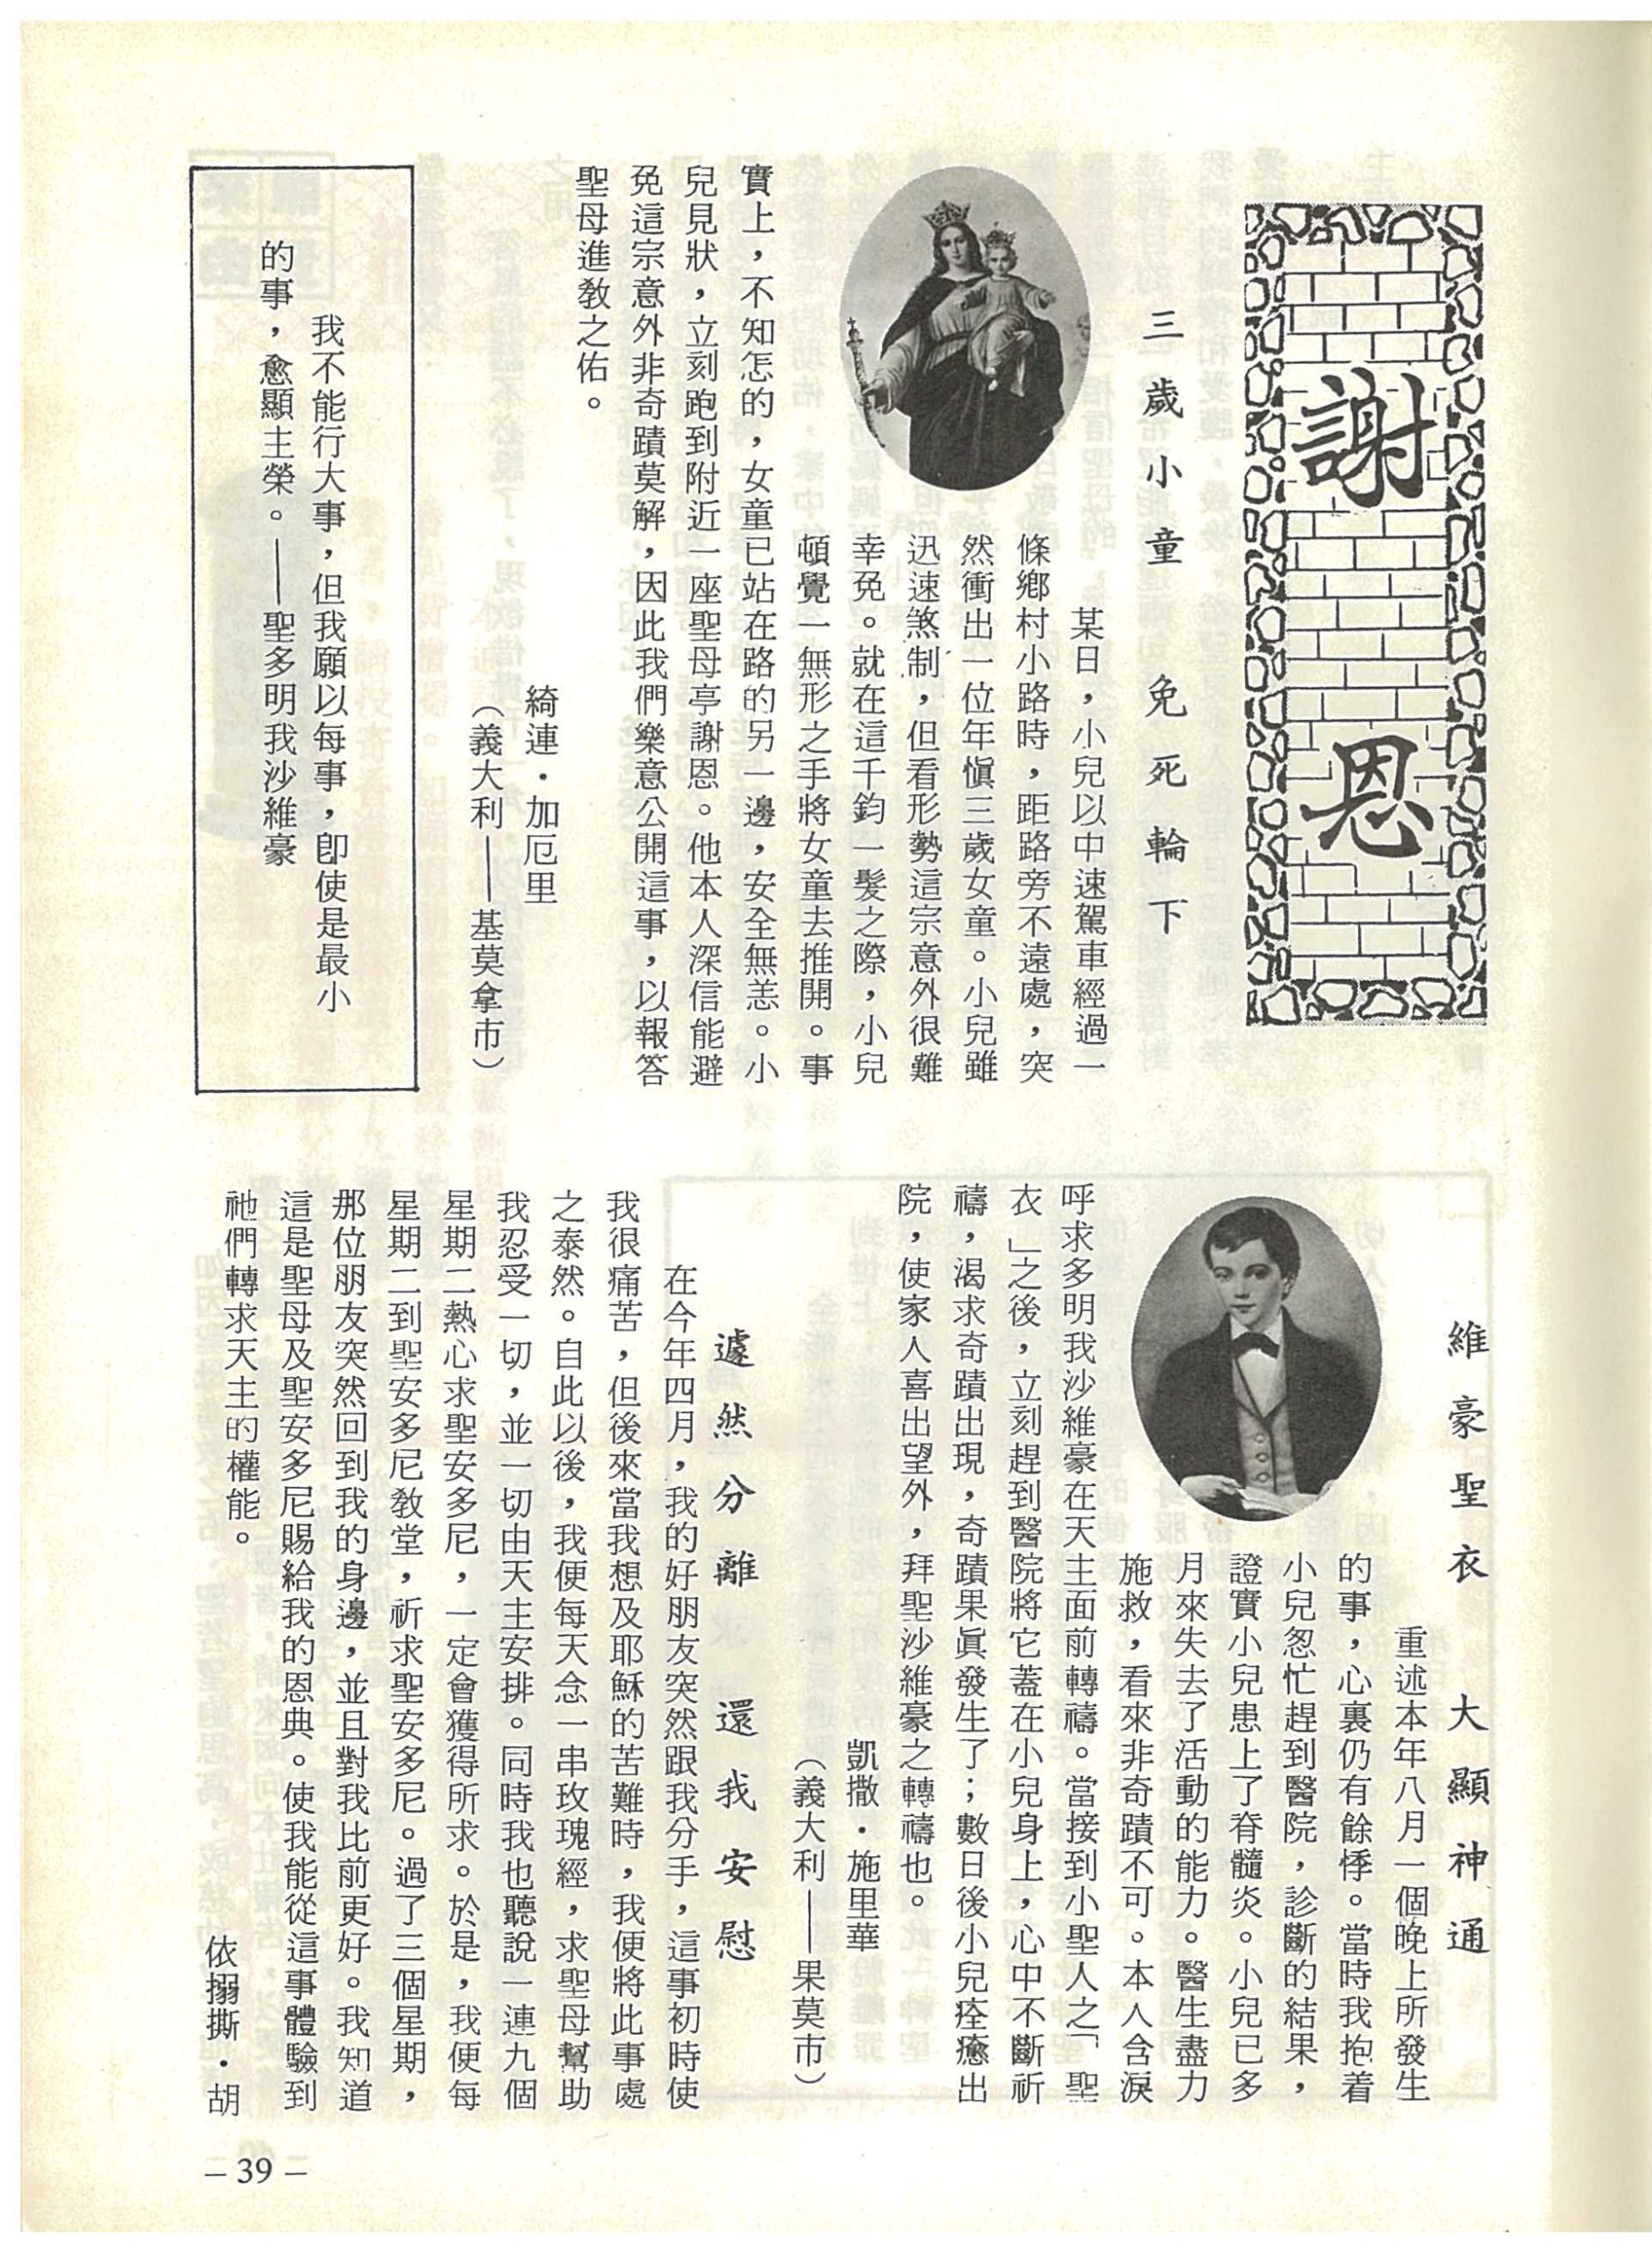 謝恩
三歲小童免死輪下
某日，小兒以中速駕車經過一
條鄉村小路時，距路旁不遠處，突
然衝出一位年愼三歲女童。小兒雖
迅速煞制，但看形勢這宗意外很難
幸免。就在這千鈞一髮之際，小兒
頓覺一無形之手將女童去推開。事
實上，不知怎的，女童已站在路的另一邊，安全無恙。小
兒見狀，立刻跑到附近一座聖母亭謝恩。他本人深信能避
免這宗意外非奇蹟莫解，因此我們樂意公開這事，以報答
聖母進教之佑。
綺連·加厄里
（義大利——基莫拿市）
我不能行大事，但我願以每事，卽使是最小
的事，愈顯主榮。——聖多明我沙維豪
維豪聖衣　大顯神通
重述本年八月一個晚上所發生
的事，心裏仍有餘悸。當時我抱着
小兒怱忙趕到醫院，診斷的結果，
證實小兒患上了脊髓炎。小兒已多
月來失去了活動的能力。醫生盡力
施救，看來非奇蹟不可。本人含淚
呼求多明我沙維豪在天主面前轉禱。當接到小聖人之「聖
衣」之後，立刻趕到醫院將它蓋在小兒身上，心中不斷祈
禱，渴求奇蹟出現，奇蹟果眞發生了；數日後小兒痊癒出
院，使家人喜出望外，拜聖沙維豪之轉禱也。
凱撒·施里華
（義大利——果莫市）
遽然分離　還我安慰
在今年四月，我的好朋友突然跟我分手，這事初時使
我很痛苦，但後來當我想及耶穌的苦難時，我便將此事處
之泰然。自此以後，我便每天念一串玫瑰經，求聖母幫助
我忍受一切，並一切由天主安排。同時我也聽說一連九個
星期二熱心求聖安多尼，一定會獲得所求。於是，我便每
星期二到聖安多尼敎堂，祈求聖安多尼。過了三個星期，
那位朋友突然回到我的身邊，並且對我比前更好。我知道
這是聖母及聖安多尼賜給我的恩典。使我能從這事體驗到
祂們轉求天主的權能。
依搦撕·胡
– 39 –